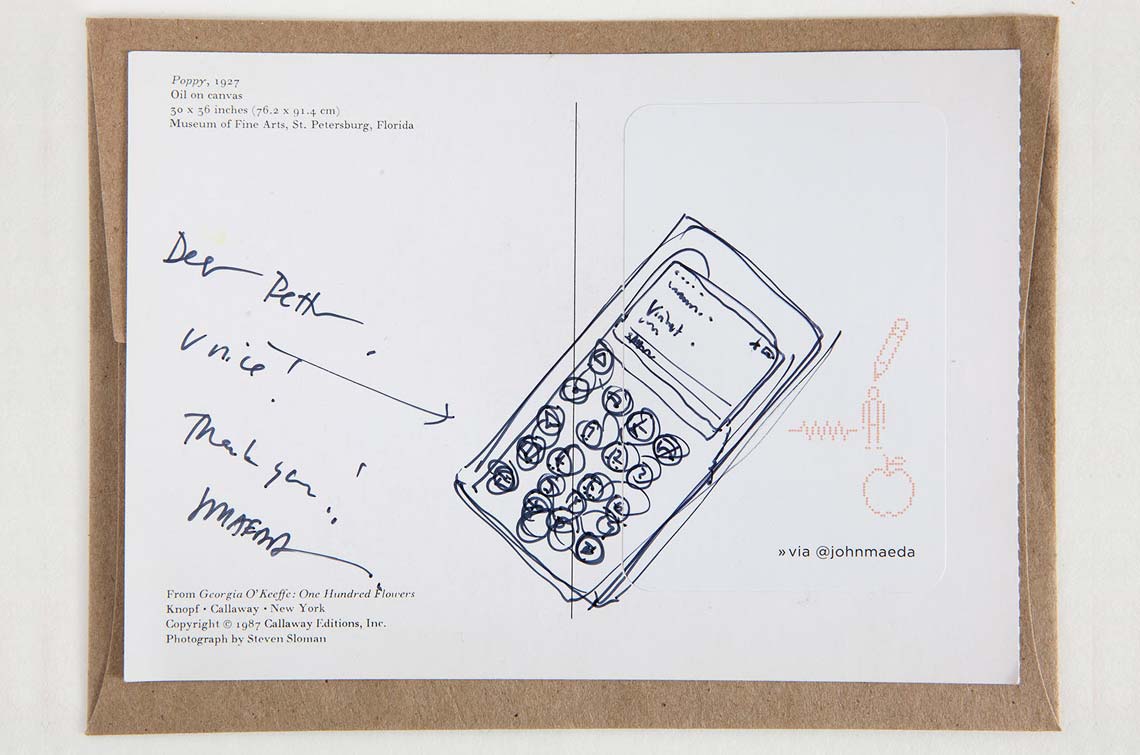 Poppy, 1927
Oil on canvas
30 x 36 inches (76.2 x 91.4 cm)
Museum of Fine Arts, St. Petersburg, Florida
Dear
V nice!
Thank you!
MAEDA
»via @johnmaeda
From Georgia O'Keeffe: One Hundred Flowers
Knopf • Callaway • New York
Copyright © 1987 Callaway Editions, Inc.
Photograph by Steven Sloman